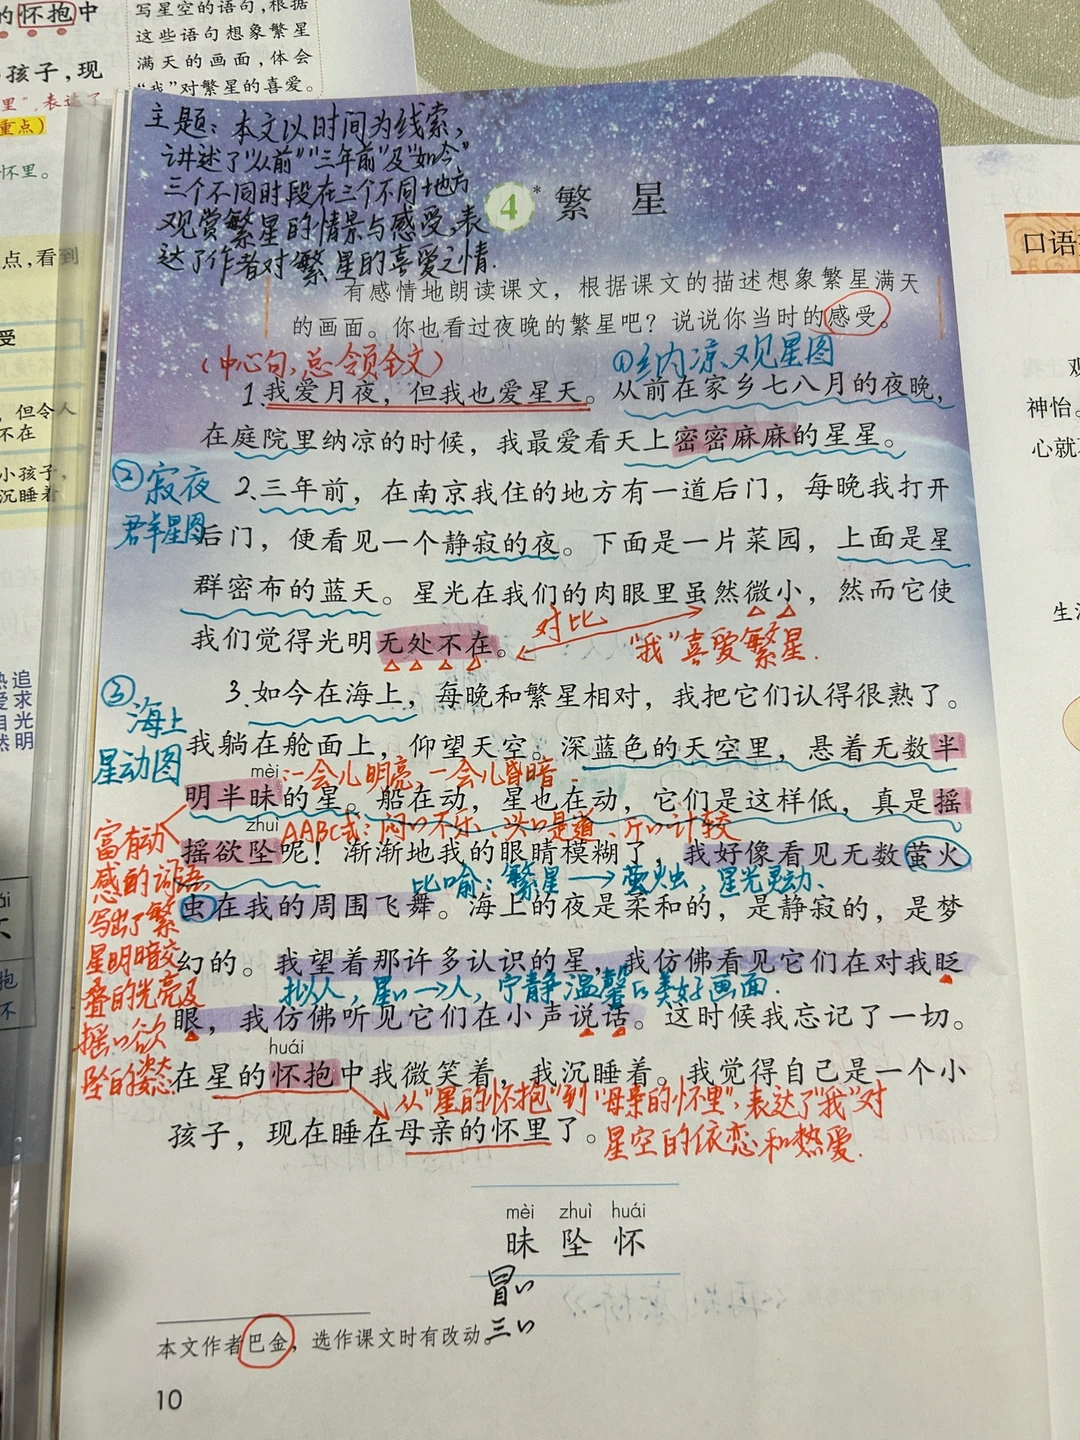 的怀抱中
孩子，现
里”，表达了
重点)
怀里。
写星空的语句，根据
这些语句想象繁星
满天的画面，体会
“我”对繁星的喜爱。
点，看到
受
，但令人
不在
小孩子，
沉睡着
追求光明
热爱自然
抱
不
主题：本文以时间为线索，
讲述了“从前”“三年前”及“如今”
三个不同时段在三个不同地方
观赏繁星的情景与感受，表
达了作者对繁星的喜爱之情.
4* 繁 星
有感情地朗读课文，根据课文的描述想象繁星满天
的画面。你也看过夜晚的繁星吧？说说你当时的感受。
(中心句，总领全文)
①纳凉观星图
1.我爱月夜，但我也爱星天。从前在家乡七八月的夜晚，
在庭院里纳凉的时候，我最爱看天上密密麻麻的星星。
②寂夜
群星图
2.三年前，在南京我住的地方有一道后门，每晚我打开
后门，便看见一个静寂的夜。下面是一片菜园，上面是星
群密布的蓝天。星光在我们的肉眼里虽然微小，然而它使
我们觉得光明无处不在。
对比
“我”喜爱繁星.
③海上
星动图
3.如今在海上，每晚和繁星相对，我把它们认得很熟了。
我躺在舱面上，仰望天空。深蓝色的天空里，悬着无数半
mèi
:一会儿明亮,一会儿昏暗.
明半昧的星。船在动，星也在动，它们是这样低，真是摇
zhuì
AABC式：闷〃不乐、头〃是道、斤〃计较
摇欲坠呢！渐渐地我的眼睛模糊了，我好像看见无数萤火
比喻：繁星→萤火虫，星光灵动.
虫在我的周围飞舞。海上的夜是柔和的，是静寂的，是梦
幻的。我望着那许多认识的星，我仿佛看见它们在对我眨
拟人，星〃→人，宁静温馨的美好画面.
眼，我仿佛听见它们在小声说话。这时候我忘记了一切。
huái
在星的怀抱中我微笑着，我沉睡着。我觉得自己是一个小
从“星的怀抱”到“母亲的怀里”，表达了“我”对
孩子，现在睡在母亲的怀里了。
星空的依恋和热爱.
富有动
感的词语
写出了繁
星明暗交
叠的光亮及
摇〃欲
坠的姿态
mèi zhuì huái
昧 坠 怀
冒〃
三〃
本文作者巴金，选作课文时有改动。
10
口语
观
神怡。
心就
生活